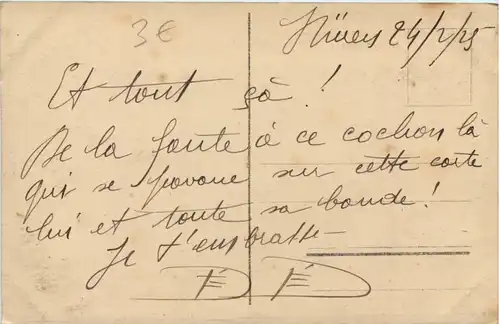 3€
24/2/25
Et tout ça !
De la faute à ce cochon là
qui se pavane sur cette carte
lui et toute sa bande !
Je t'embrasse